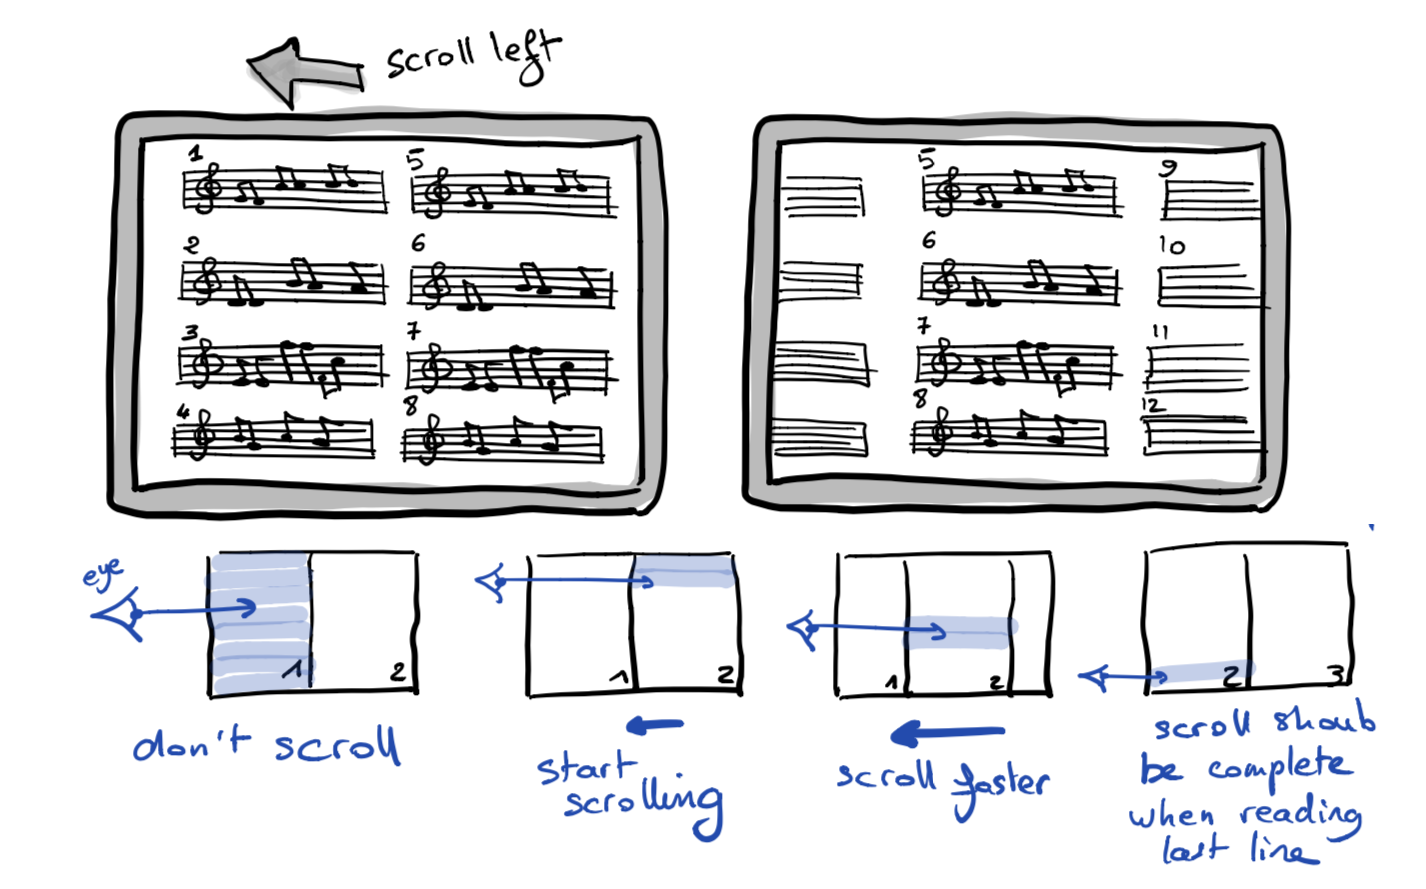 scroll left
1
5
2
6
3
7
4
8
5
9
6
10
7
11
8
12
eye
1
2
don't scroll
1
2
start
scrolling
1
2
scroll faster
2
3
scroll shoub
be complete
when reading
last line